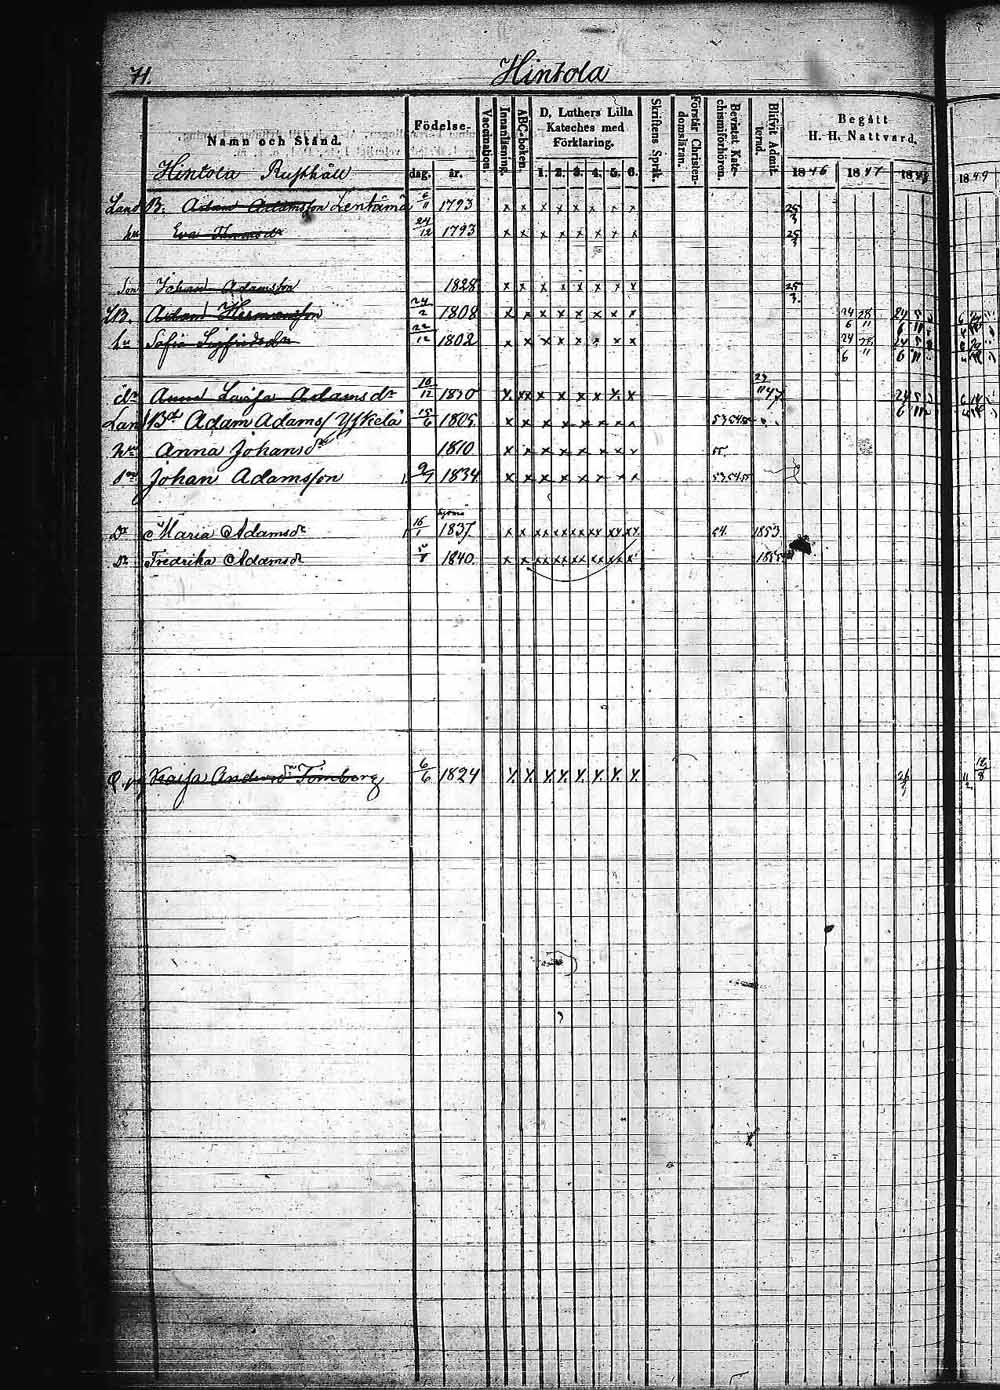 71.
Hintola
Namn och Stånd.
Födelse-
dag.
år.
Vaccination.
Innanläsning.
ABC-boken.
D. Luthers Lilla
Kateches med
Förklaring.
1. 2. 3. 4. 5. 6.
Skriftens Språk.
Förstår Christen-
domsläran.
Bevistat Kate-
chismiförhören.
Blifvit Admit-
terad.
Begått
H. H. Nattvard.
1846 1847 1848 1849
Hintola Rusthåll
Land B. Adam Adamsson Lenkämä 6/11 1793 x x x x x x x x 25/3
hu Eva 24/12 1793 x x x x x x x x 25/3
Son Johan Adamsson 1828 x x x x x x x x 25/3
LB. Adam Hermansson 24/2 1808 x x x x x x x x 24/6 28/11
hu Sofia Sigfridsdr 22/12 1802 x x x x x x x x 24/6 28/11
dr Anna Lovisa Adamsdr 16/12 1830 x xx x x x x x x
Land Br Adam Adamss Yykelä 15/6 1805 x x x x x x x x 53 54 55
hu Anna Johansdr 1810 x x x x x x x x 55
son Johan Adamsson 2/9 1834 x x x x x x x x 53 54 55
Dr Maria Adamsdr 16/1 1837 x x xx xx xx xx xx xx 54 1853
Dr Fredrika Adamsdr 5/8 1840 x x xx xx xx xx xx x 1855
Kaisa Andersdr Tomberg 6/6 1824 x x x x x x x x 26/3